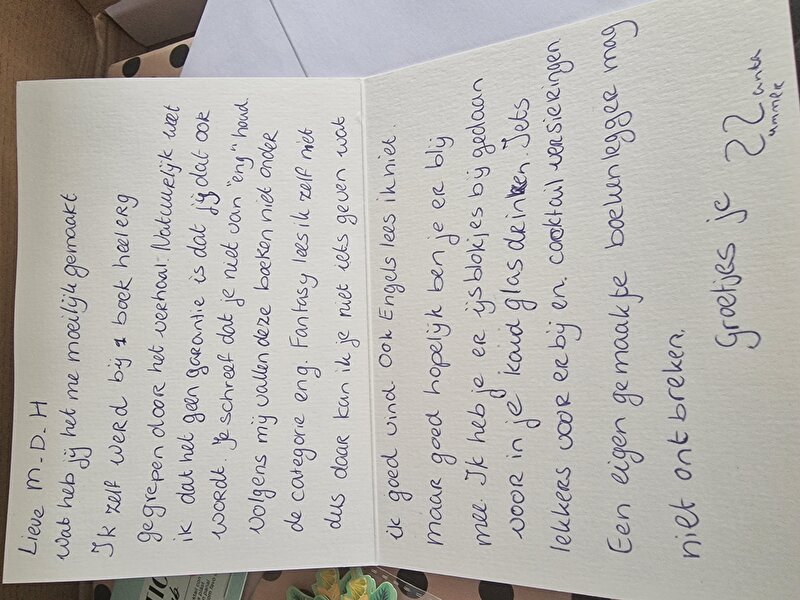 Lieve M-D-H
Wat heb jij het me moeilijk gemaakt
Ik zelf werd bij 1 boek heel erg
gegrepen door het verhaal. Natuurlijk weet
ik dat het geen garantie is dat jij dat ook
wordt. Je schreef dat je niet van "eng" houd.
Volgens mij vallen deze boeken niet onder
de categorie eng. Fantasy lees ik zelf niet
dus daar kan ik je niet iets geven wat
ik goed vind ook Engels lees ik niet.
maar goed hopelijk ben je er blij
mee. Ik heb je er ijsblokjes bij gedaan
voor in je koud glas drinken. Iets
lekkers voor erbij en cocktail versieringen
Een eigen gemaakte boekenlegger mag
niet ontbreken.
Groetjes je ZZ